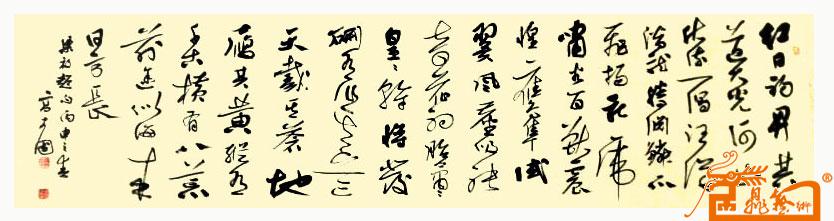 红日初升其
道大光河出
伏流一泻汪洋
潜龙腾渊鳞爪
飞扬乳虎
啸谷百兽震
惶鹰隼试
翼风尘吸张
奇花初胎矞矞
皇皇干将发
硎有作其芒
天戴其苍地
履其黄纵有
千古横有八荒
前途似海来
日方长
梁启超句丙申之春